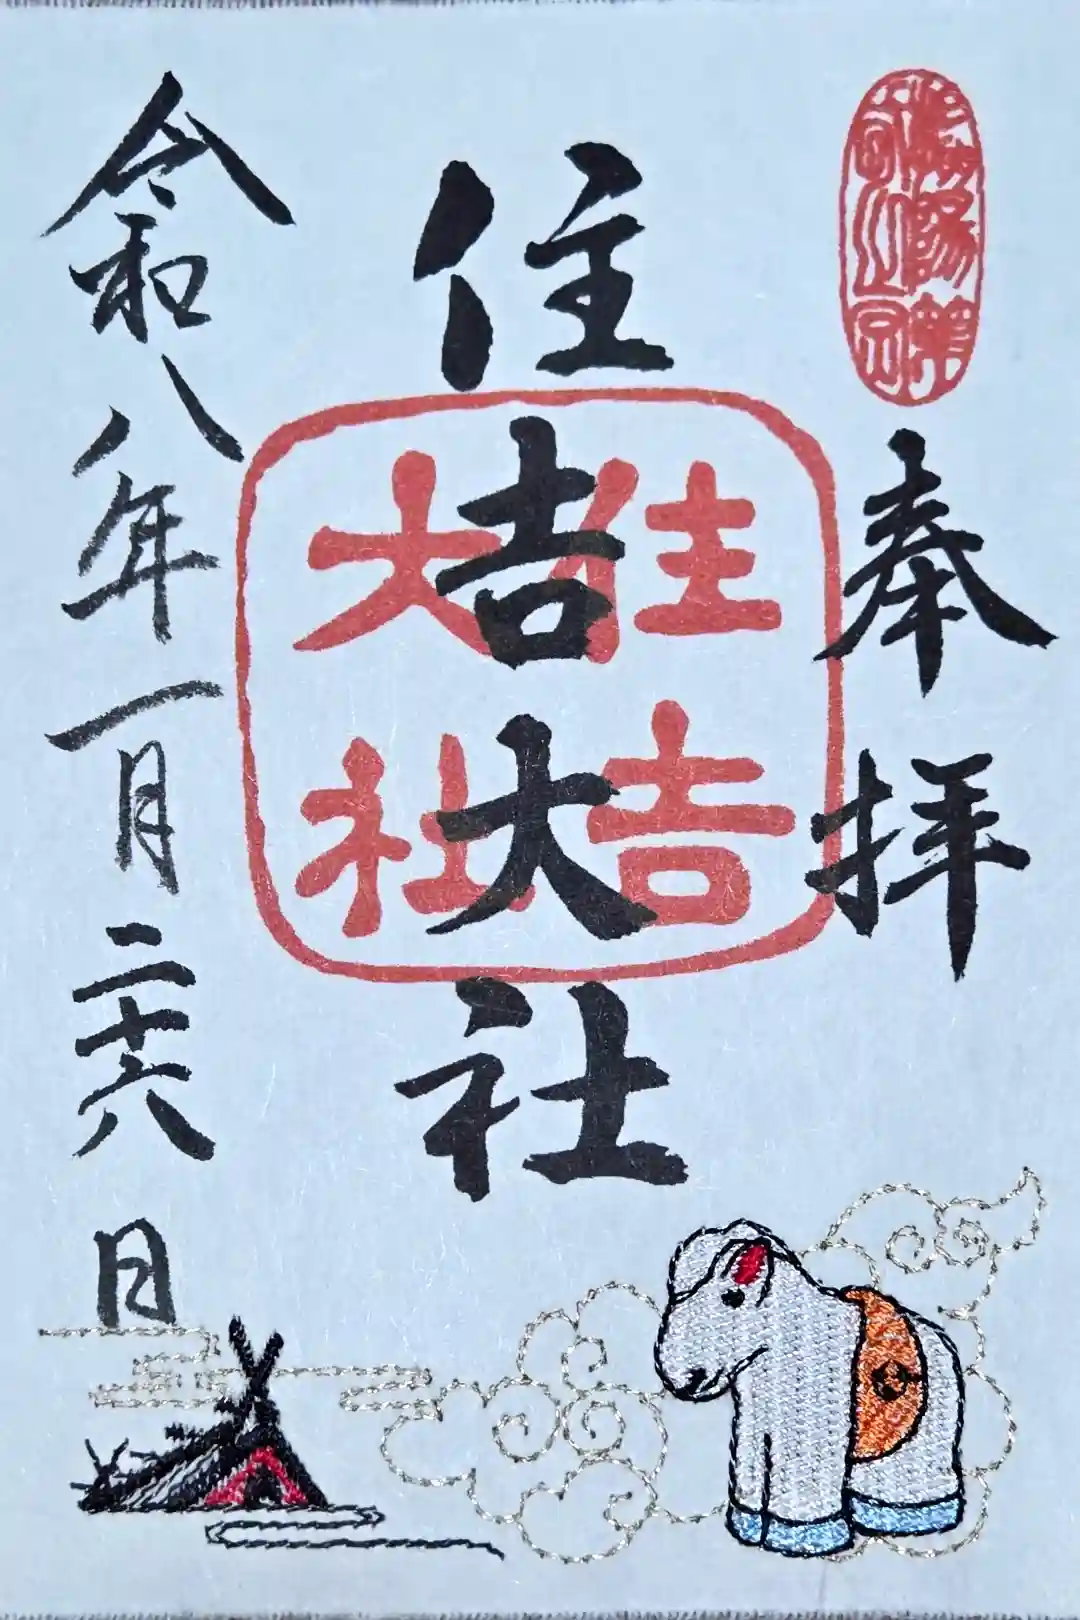 奉拝
住吉大社
住吉
大社
令和八年一月二十六日